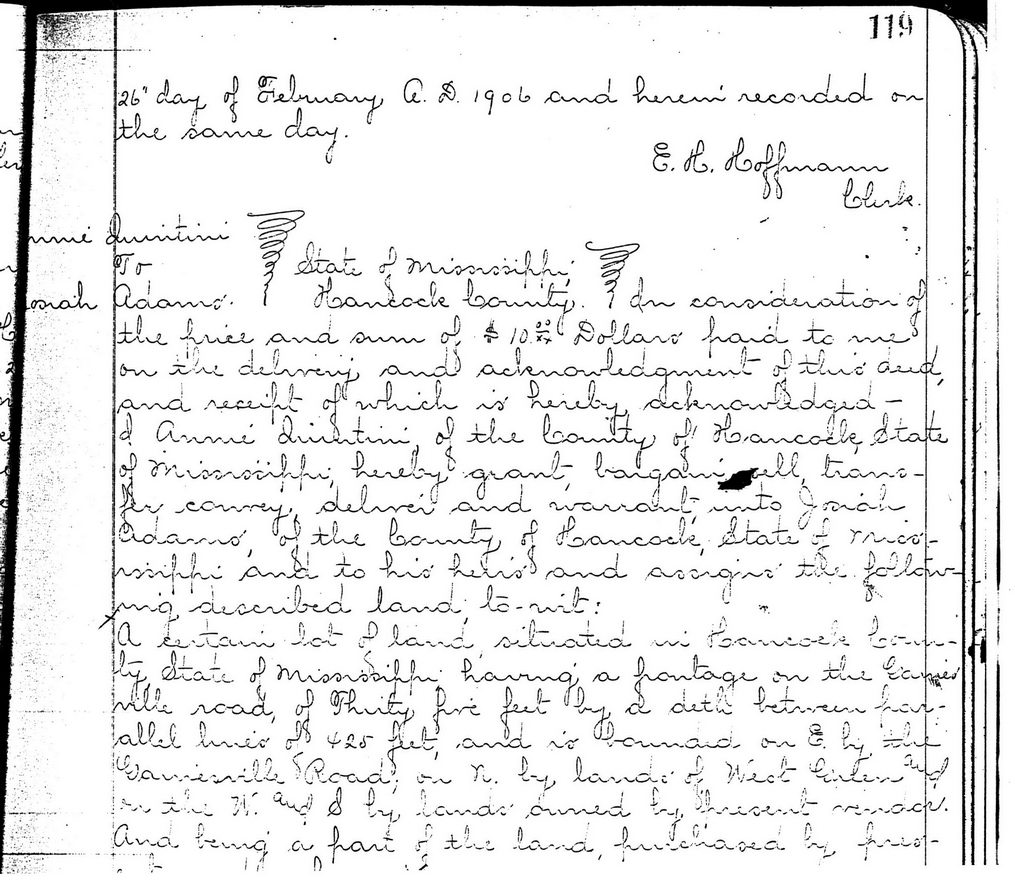 119
26" day of February A. D. 1906 and herein recorded on
the same day.
E. H. Hoffmann
Clerk.
Annie Quintini
To State of Mississippi,
Josiah Adams. Hancock County. In consideration of
the price and sum of $ 10.00/xx Dollars paid to me
on the delivery and acknowledgment of this deed,
and receipt of which is hereby acknowledged -
I Annie Quintini, of the County of Hancock, State
of Mississippi, hereby grant, bargain, sell, trans-
fer convey, deliver and warrant, unto Josiah
Adams, of the County of Hancock, State of Miss-
issippi and to his heirs and assigns the follow-
ing described land, to-wit:
A certain lot of land, situated in Hancock Coun-
ty, State of Mississippi having a frontage on the Gaines
ville road, of Thirty five feet by a deth between par-
allel lines of 425 feet, and is bounded on E. by the
Gainesville Road, on N. by lands of West and
on the W. and S by lands owned by present vendor.
And being a part of the land, purchased by pres-